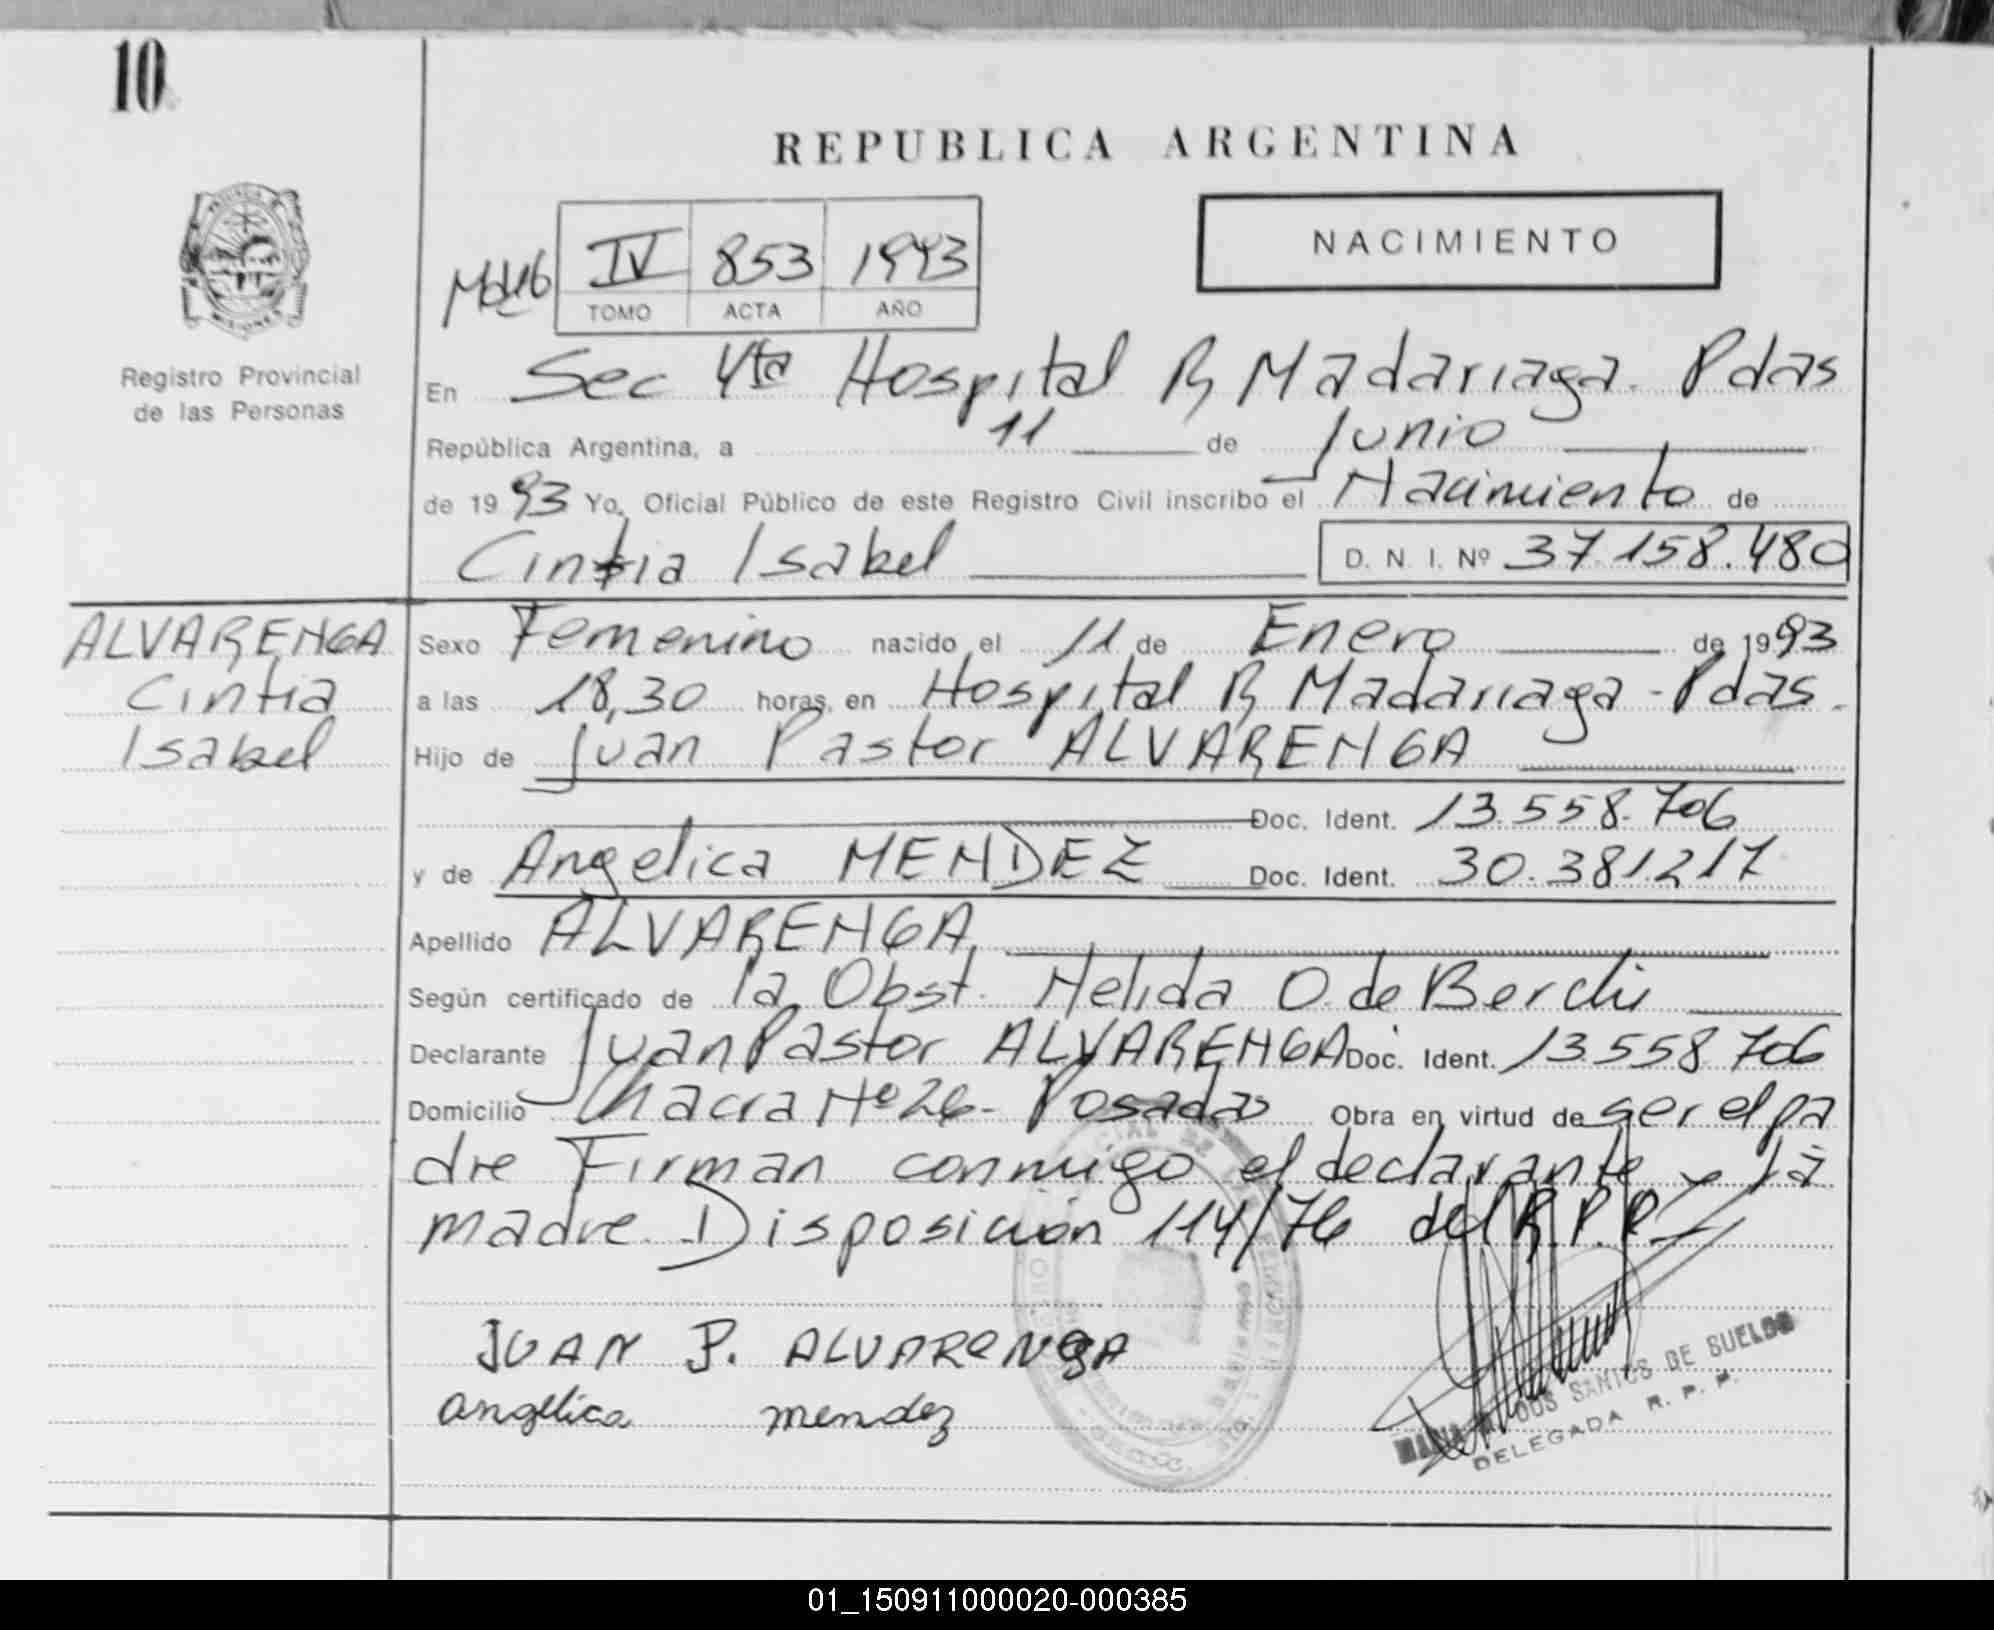 10
REPUBLICA ARGENTINA
NACIMIENTO
IV 853 1993
TOMO ACTA AÑO
Registro Provincial
de las Personas
En Sec 4ta Hospital R Madariaga. Pdas
República Argentina, a 11 de Junio
de 1993 Yo, Oficial Público de este Registro Civil inscribo el Nacimiento de
Cintia Isabel D. N. I. Nº 37.158.480
ALVARENGA
Cintia
Isabel
Sexo Femenino nacido el 11 de Enero de 1993
a las 18,30 horas, en Hospital R Madariaga - Pdas.
Hijo de Juan Pastor ALVARENGA
Doc. Ident. 13.558.706
y de Angelica MENDEZ Doc. Ident. 30.381.217
Apellido ALVARENGA
Según certificado de la Obst. Nelida O. de Berchi
Declarante Juan Pastor ALVARENGA Doc. Ident. 13.558.706
Domicilio Chacra Nº 26- Posadas Obra en virtud de ser el pa
dre Firman conmigo el declarante y la
madre. Disposicion 114/76 del R.P.P.
JUAN P. ALVARENGA
angelica mendez
DOS SANTOS DE SUELDO
DELEGADA R. P. P.
01_150911000020-000385